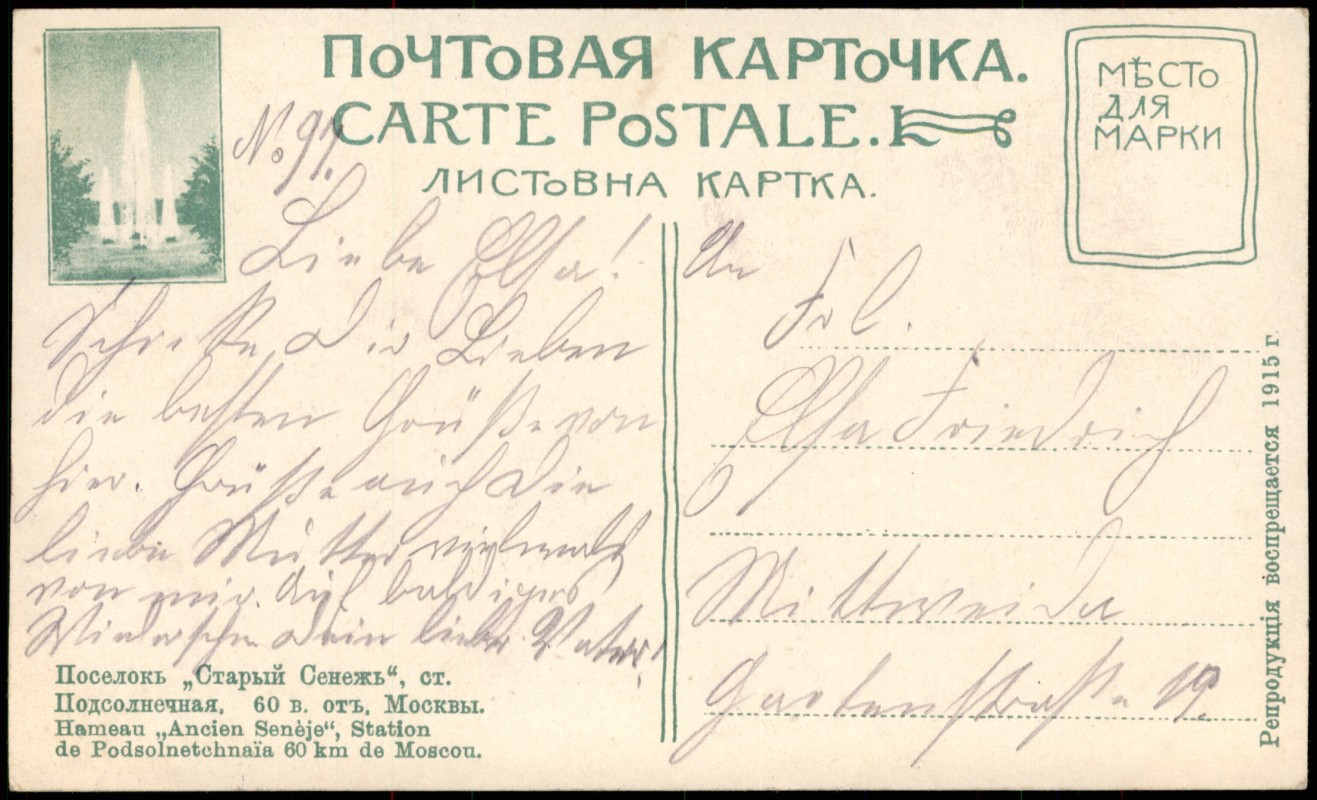 ПОЧТОВАЯ КАРТОЧКА.
CARTE POSTALE.
ЛИСТОВНА КАРТКА.
МѢСТО
ДЛЯ
МАРКИ
No 91.
Liebe Elsa!
Dir Lieben
die besten Grüße von
hier. Grüße auch die
liebe Mutter vielmals
von mir. Auf baldiges
Wiedersehn Dein lieber Vater!
An
Frl.
Elsa Friedrich
Mittweida
Gartenstraße 19.
Поселокъ „Старый Сенежъ“, ст.
Подсолнечная, 60 в. отъ, Москвы.
Hameau „Ancien Senèje“, Station
de Podsolnetchnaïa 60 km de Moscou.
Репродукція воспрещается 1915 г